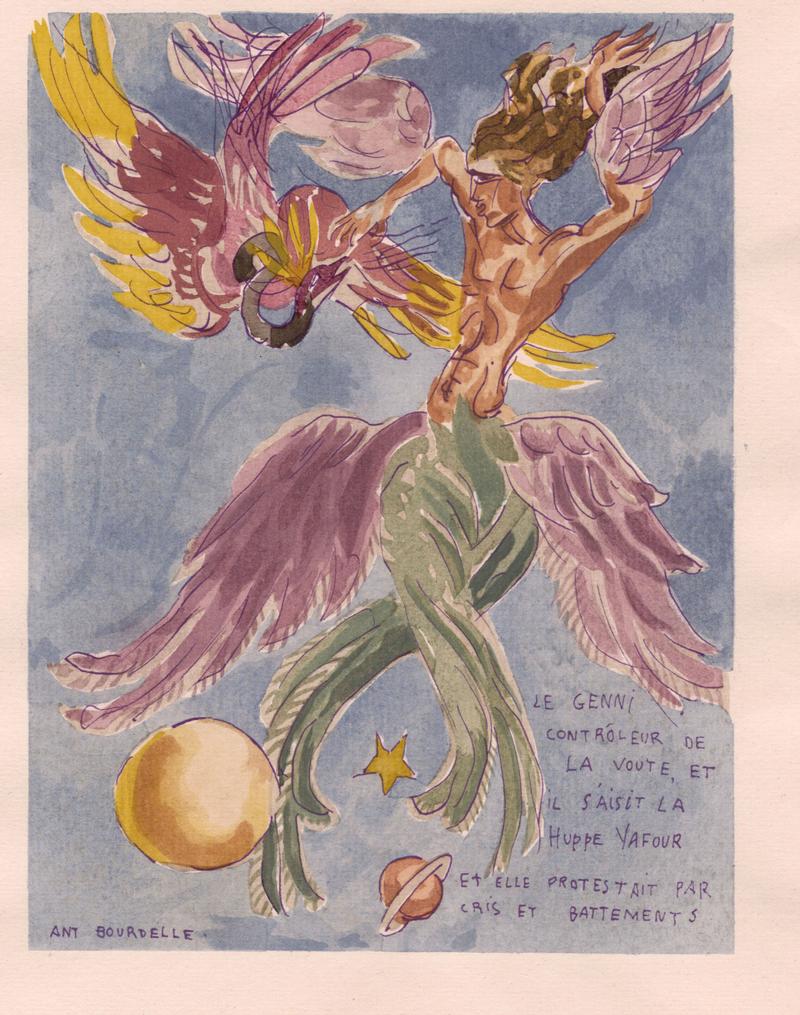 LE GENNI
CONTRÔLEUR DE
LA VOUTE, ET
IL S'AISIT LA
HUPPE YAFOUR
ET ELLE PROTESTAIT PAR
CRIS ET BATTEMENTS
ANT BOURDELLE.